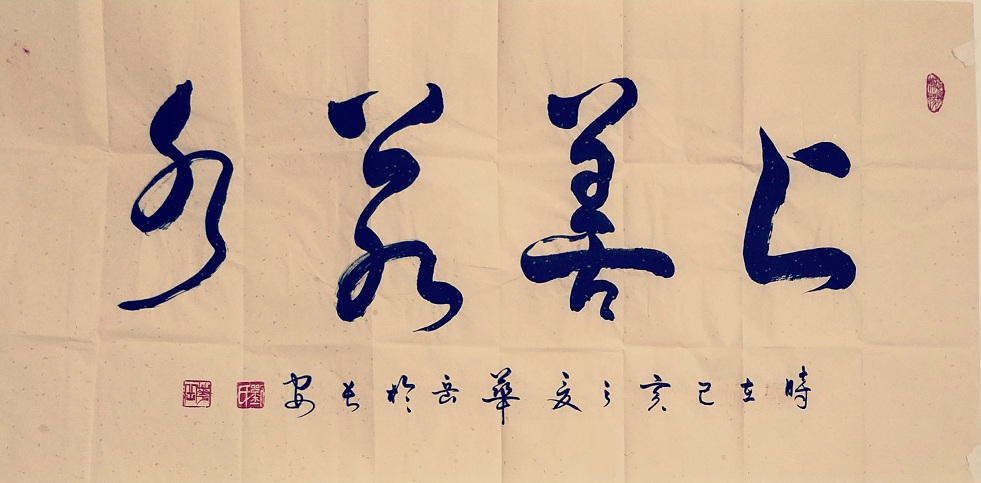 上善若水
時在己亥之夏華岳於長安